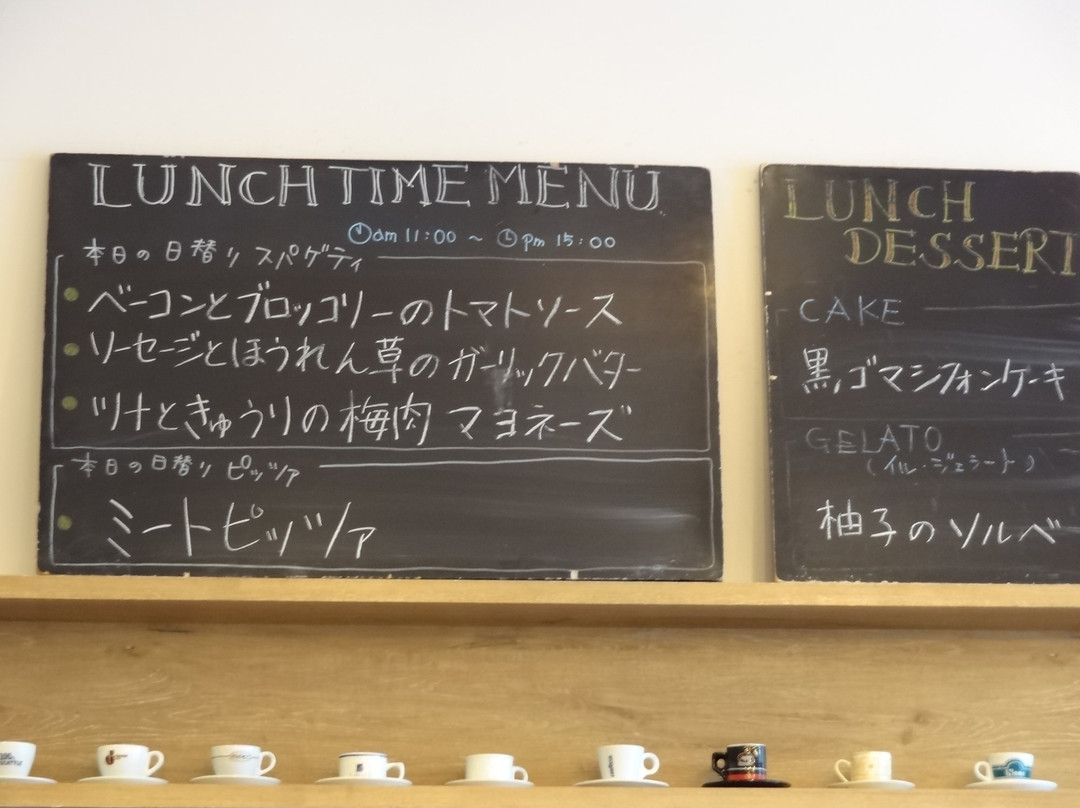 LUNCH TIME MENU
am 11:00 ~ pm 15:00
本日の日替り スパゲティ
ベーコンとブロッコリーのトマトソース
ソーセージとほうれん草のガーリックバター
ツナときゅうりの梅肉 マヨネーズ
本日の日替り ピッツァ
ミートピッツァ
LUNCH
DESSERT
CAKE
黒ゴマシフォンケーキ
GELATO
(イル・ジェラート)
柚子のソルベ